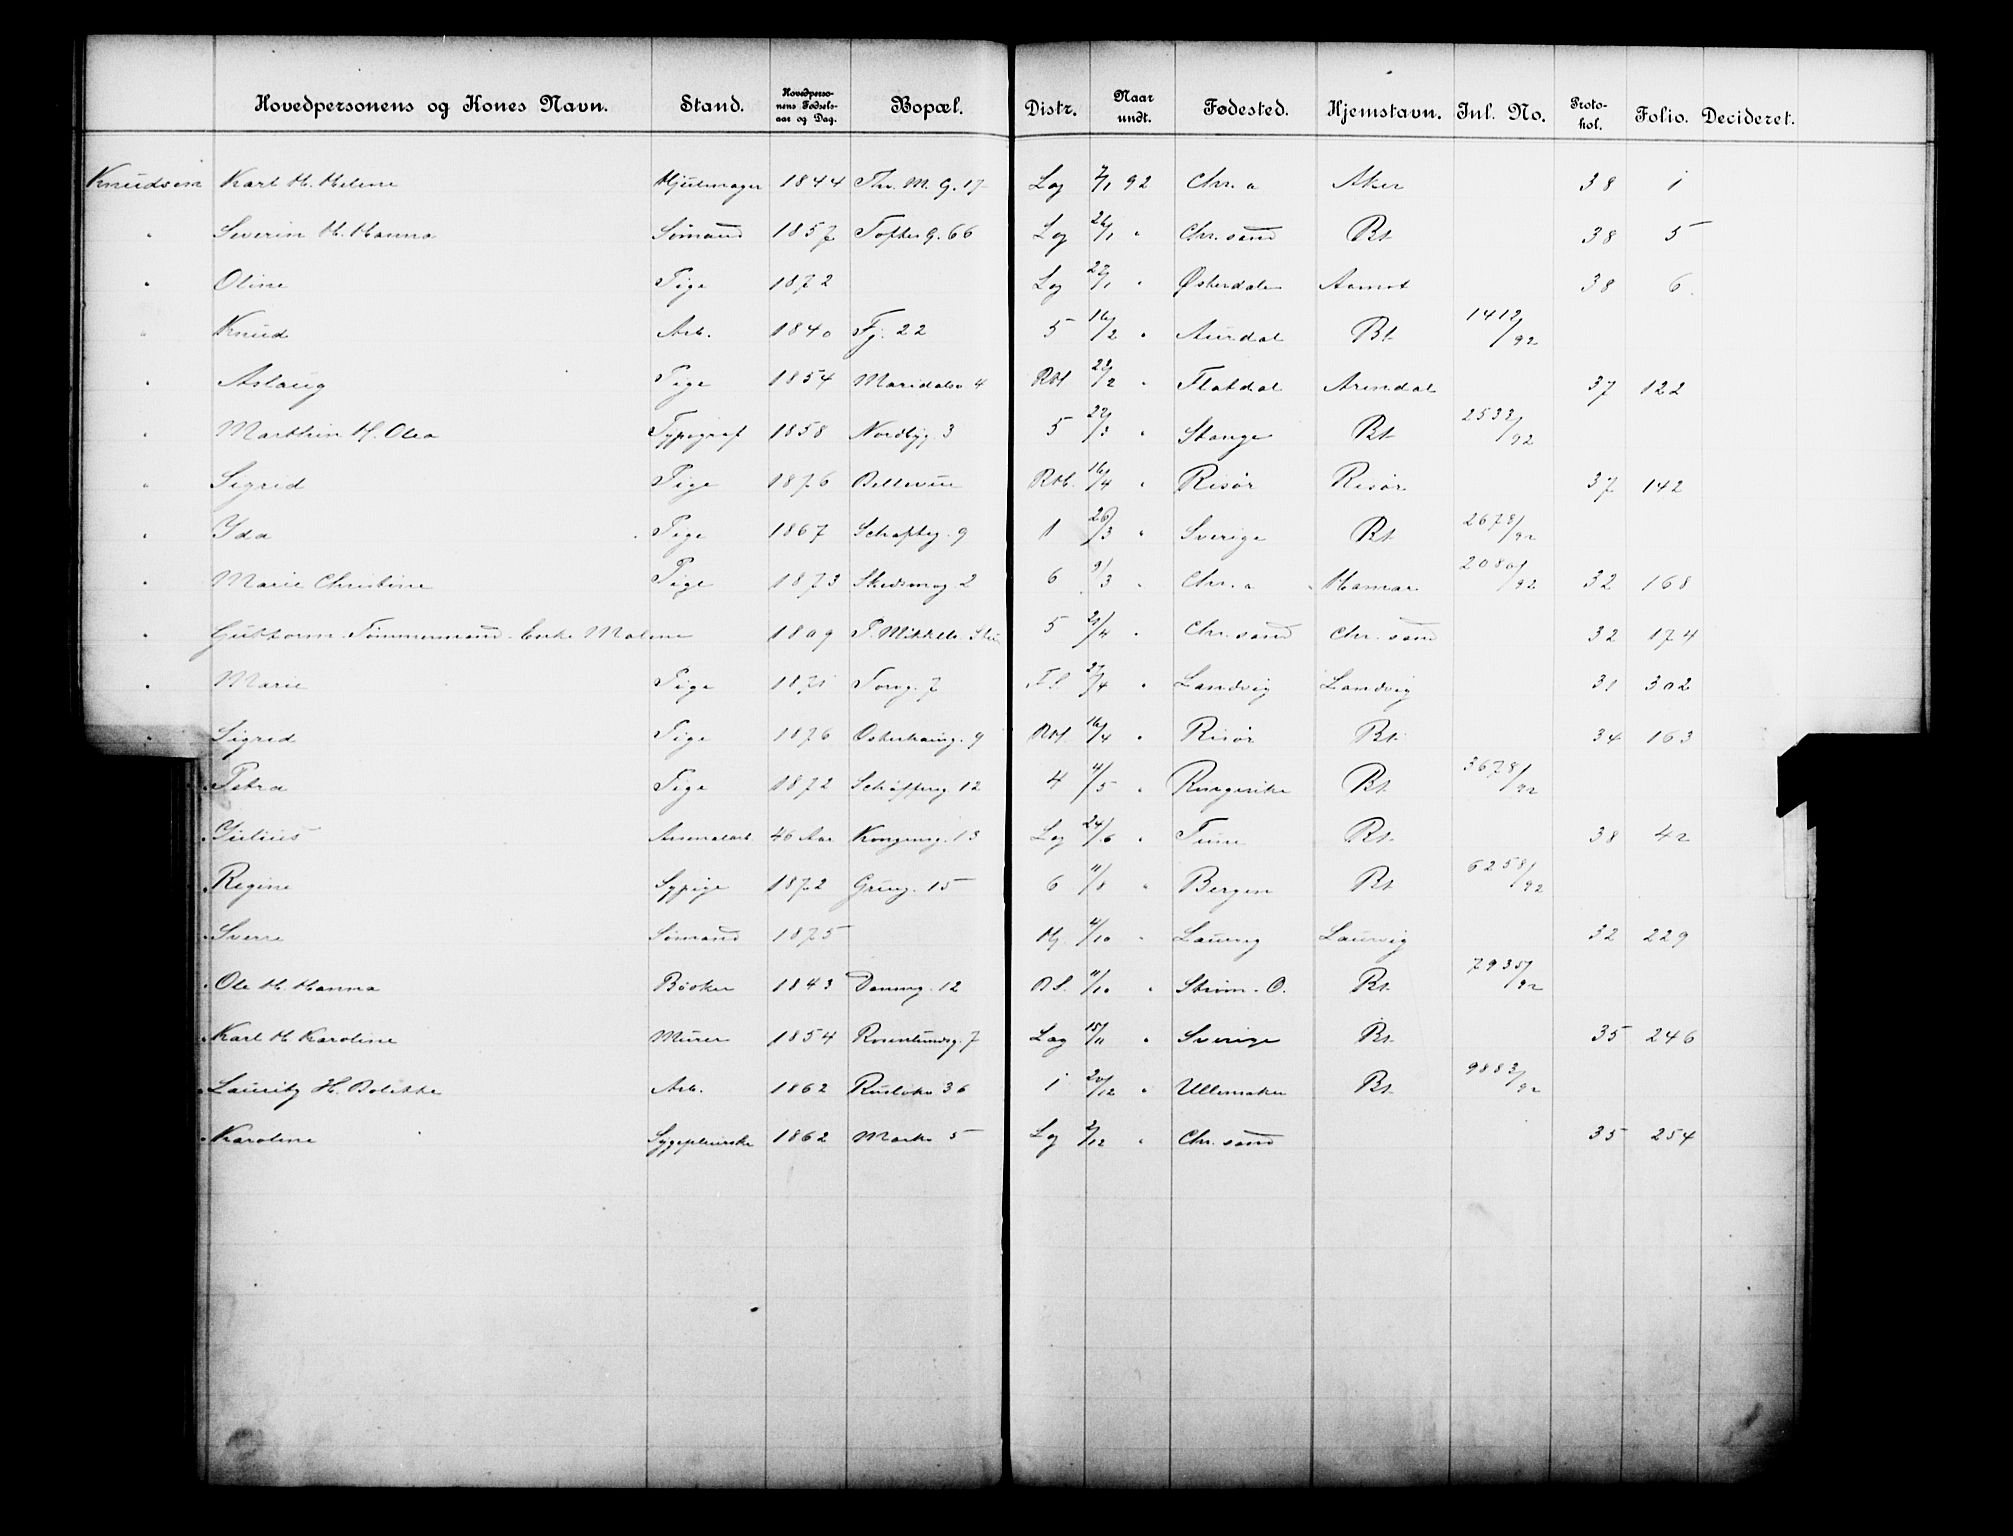 Hovedpersonens og Kones Navn. Stand. Hovedperso-nens Fødsels-aar og Dag. Bopæl. Distr. Naar undt. Fødested. Hjemstavn. Inl. No. Proto-kol. Folio. Decideret.
Knudsen Karl H. Helene Hjulmager 1844 Thv. M. G. 17 Lag 7/1 92 Chr.a Aker 38 1
" Severin H. Hanna Sømand 1857 Toftes G. 66 Lag 26/1 " Chr.sand Bt. 38 5
" Oline Pige 1872 Lag 27/1 " Østerdalen Aamot 38 6
" Knud Arb. 1840 Fj. 22 5 16/2 " Aurdal Bt. 1412/92
" Aslaug Pige 1854 Maridalsv 4 RH. 22/2 " Flatdal Arendal 37 122
" Marthin H. Olea Typograf 1858 Nordbyg. 3 5 22/3 " Stange Bt. 2532/92
" Sigrid Pige 1876 Bellevue RH. 16/4 " Risør Risør 37 142
" Yda Pige 1867 9 1 26/3 " Sverige Bt. 2678/92
" Marie Christine Pige 1873 Skedsmog 2 6 9/3 " Chr.a Hamar 2080/92 32 168
" Guttorm Tømmermand Enke Malene 1809 P. Mikkels 5 21/4 " Chr.sand Chr.sand 32 174
" Marie Pige 1871 Torvg. 7 27/4 " Landvig Landvig 31 302
" Sigrid Pige 1876 Osterhausg. 9 RH. 16/4 " Risør Bt. 34 163
" Petra Pige 1872 12 4 4/5 " Ringerike Bt. 3678/92
" Julius Arsenalarb. 46 Aar Kongensg. 13 Lag 24/6 " Tune Bt. 38 42
" Regine Sypige 1872 Grúng. 15 6 11/8 " Bergen Bt. 6258/92
" Sverre Sømand 1875 4/10 " Laurvig Laurvig 32 229
" Ole H. Hanna Bøsker 1843 Dammg. 12 11/10 " Strøm. O. Bt. 7935/92
" Karl H. Karoline Murer 1854 Rosenlundsg. 7 Lag 15/11 " Sverige Bt. 35 246
" Lauritz H. Bolette Arb. 1862 Ruseløkv 36 1 20/12 " Ullensaker Bt. 9883/92
" Karoline Sygepleierske 1862 Markv 5 Lag 2/12 " Chr.sand 35 254